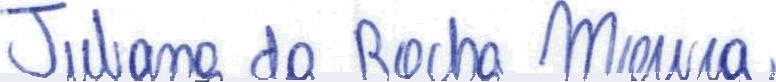 Juliana da Rocha Moura.